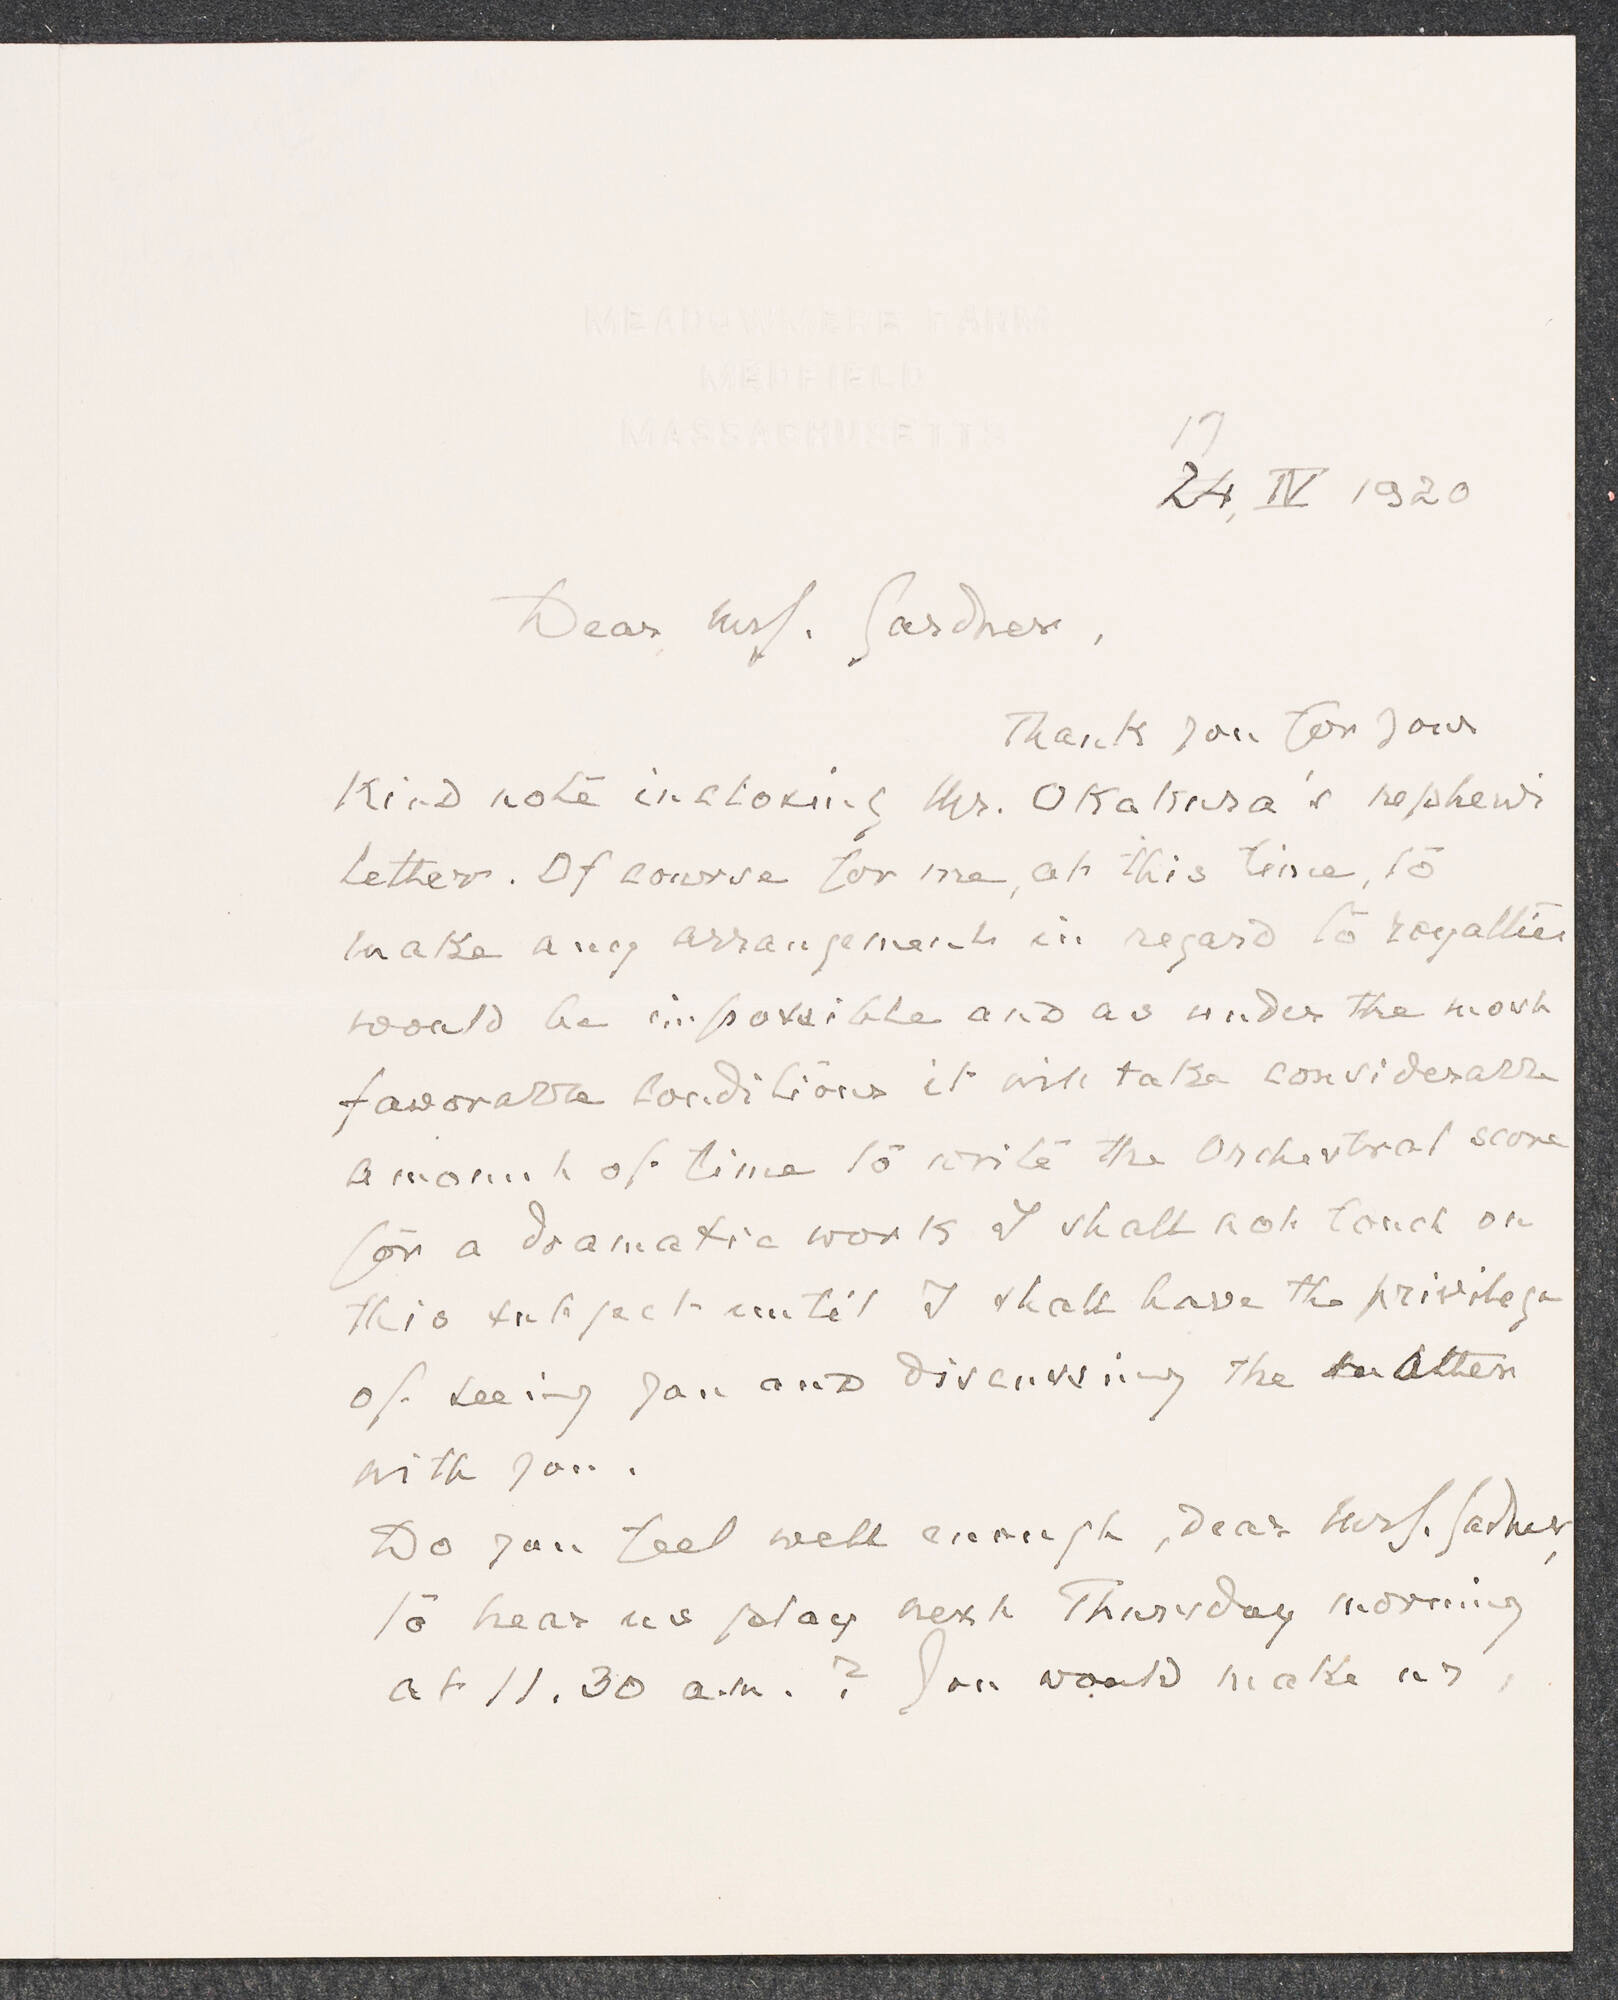 MEADOWMERE FARM
MEDFIELD
MASSACHUSETTS
17
24, IV 1920
Dear Mrs. Gardner,
Thank you for your
Kind note inclosing Mr. Okakura's nephews
letter. Of course for me, at this time, to
make any arrangements in regard to royalties
would be impossible and as under the most
favorable conditions it will take considerable
amount of time to write the Orchestral score
for a dramatic work I shall not touch on
this subject until I shall have the privilege
of seeing you and discussing the matter
with you.
Do you feel well enough, dear Mrs. Gardner,
to hear us play next Thursday morning
at 11.30 a.m.? You would make us,